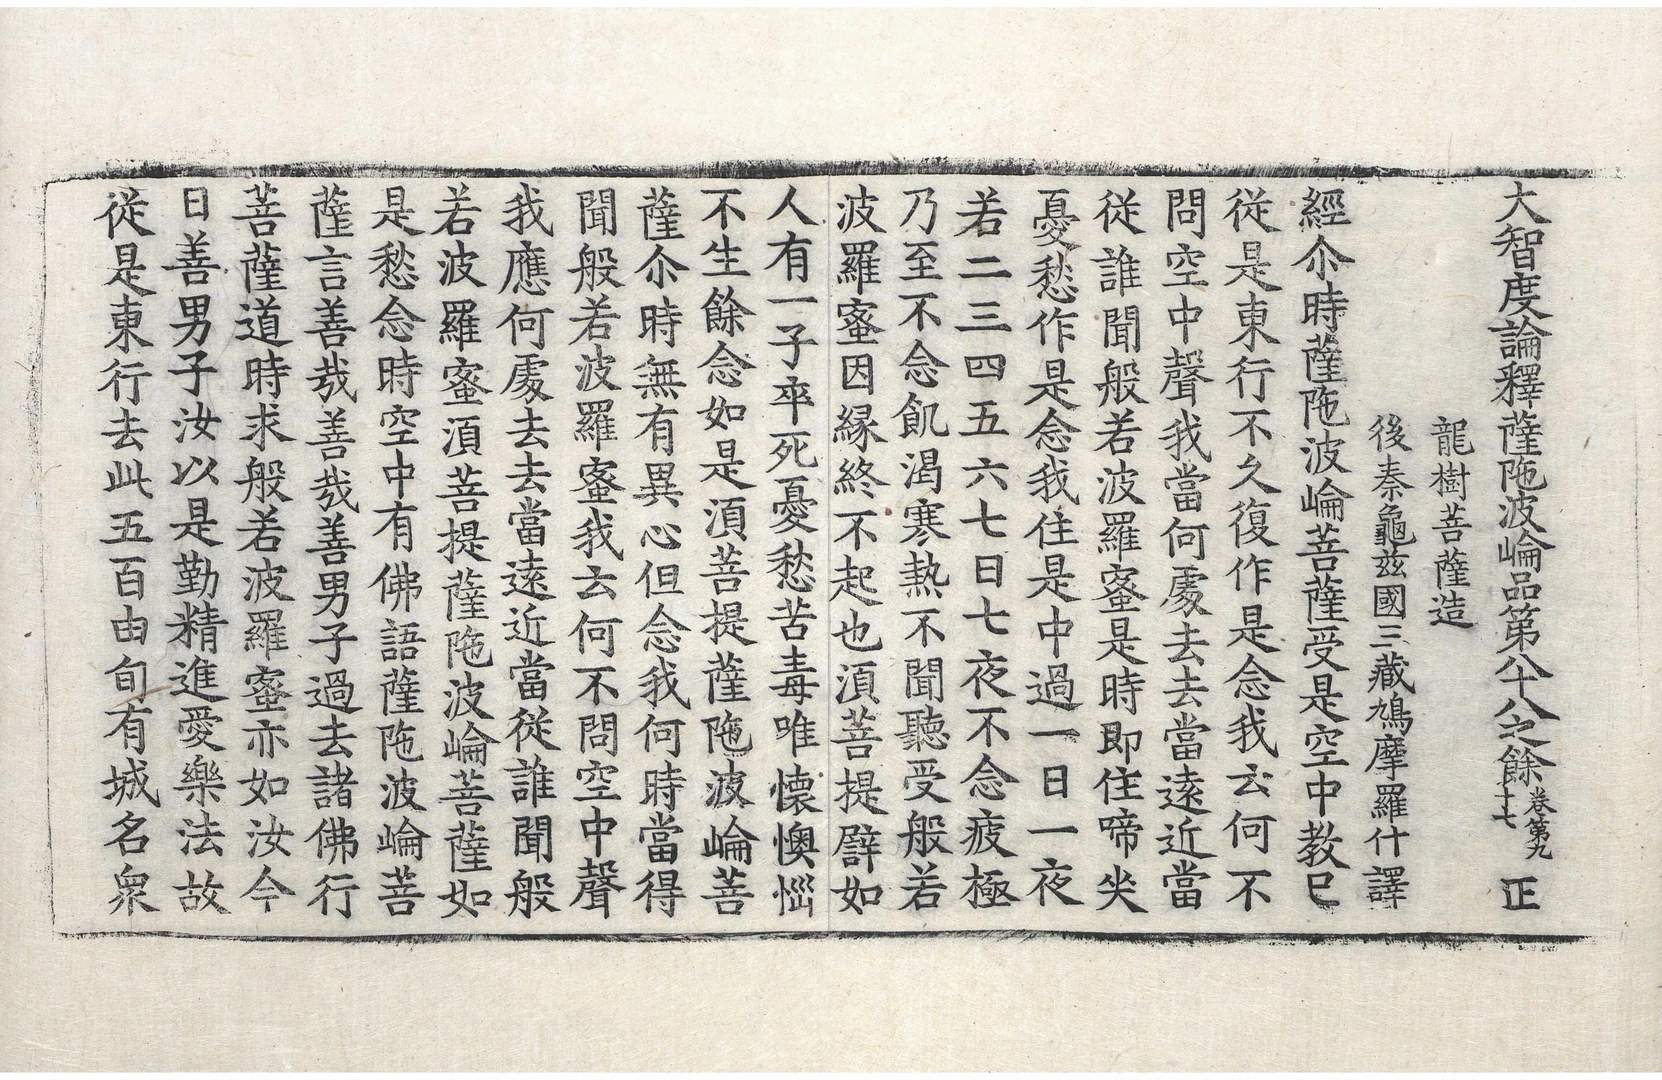 大智度論釋薩陁波崘品第八十八之餘 卷第九十七 正
龍樹菩薩造
後秦龜茲國三藏鳩摩羅什譯
經尒時薩陁波崘菩薩受是空中教已
從是東行不久復作是念我云何不
問空中聲我當何處去去當遠近當
從誰聞般若波羅蜜是時即住啼哭
憂愁作是念我住是中過一日一夜
若二三四五六七日七夜不念疲極
乃至不念飢渴寒熱不聞聽受般若
波羅蜜因緣終不起也湏菩提譬如
人有一子卒死憂愁苦毒唯懷懊惱
不生餘念如是湏菩提薩陁波崘菩
薩尒時無有異心但念我何時當得
聞般若波羅蜜我云何不問空中聲
我應何處去去當遠近當從誰聞般
若波羅蜜湏菩提薩陁波崘菩薩如
是愁念時空中有佛語薩陁波崘菩
薩言善哉善哉善男子過去諸佛行
菩薩道時求般若波羅蜜亦如汝今
日善男子汝以是勤精進愛樂法故
從是東行去此五百由旬有城名衆